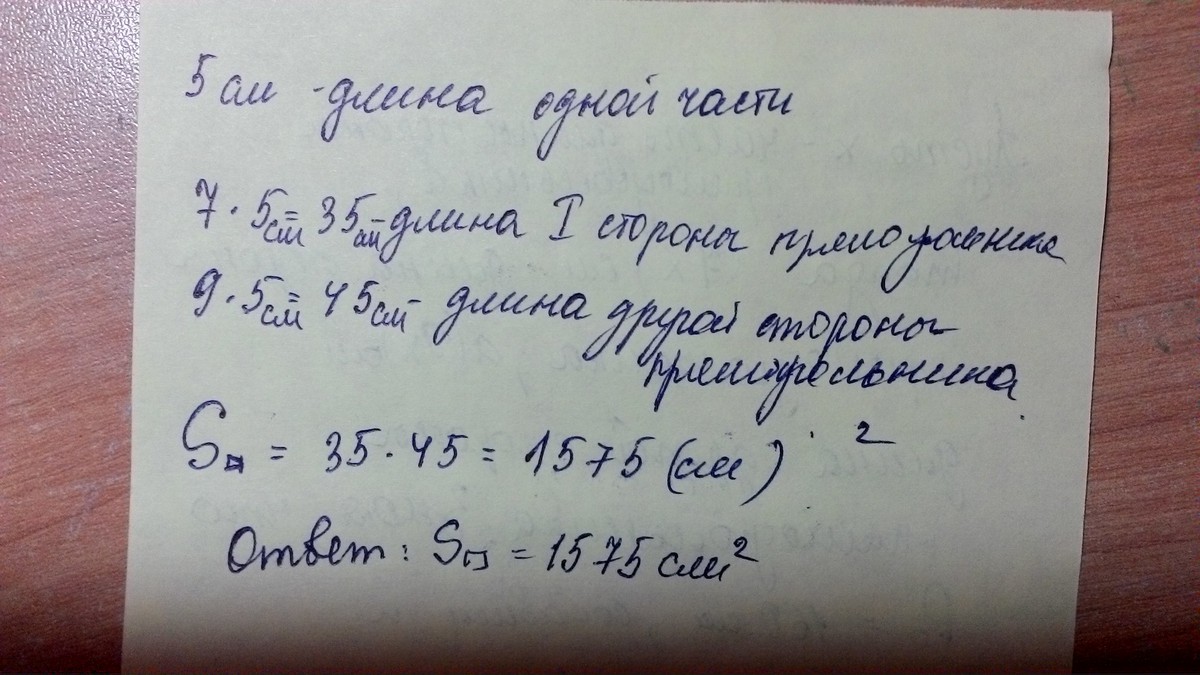 5 см - длина одной части
7 · 5см = 35см - длина I стороны прямоугольника
9 · 5см = 45см - длина другой стороны
прямоугольника
S▭ = 35 · 45 = 1575 (см)²
Ответ: S▭ = 1575 см²